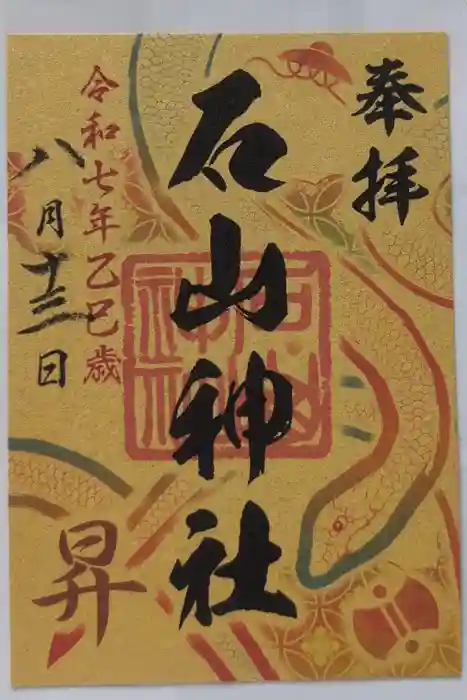 奉拝
石山神社
石山神社
令和七年乙巳歳
八月十三日
昇